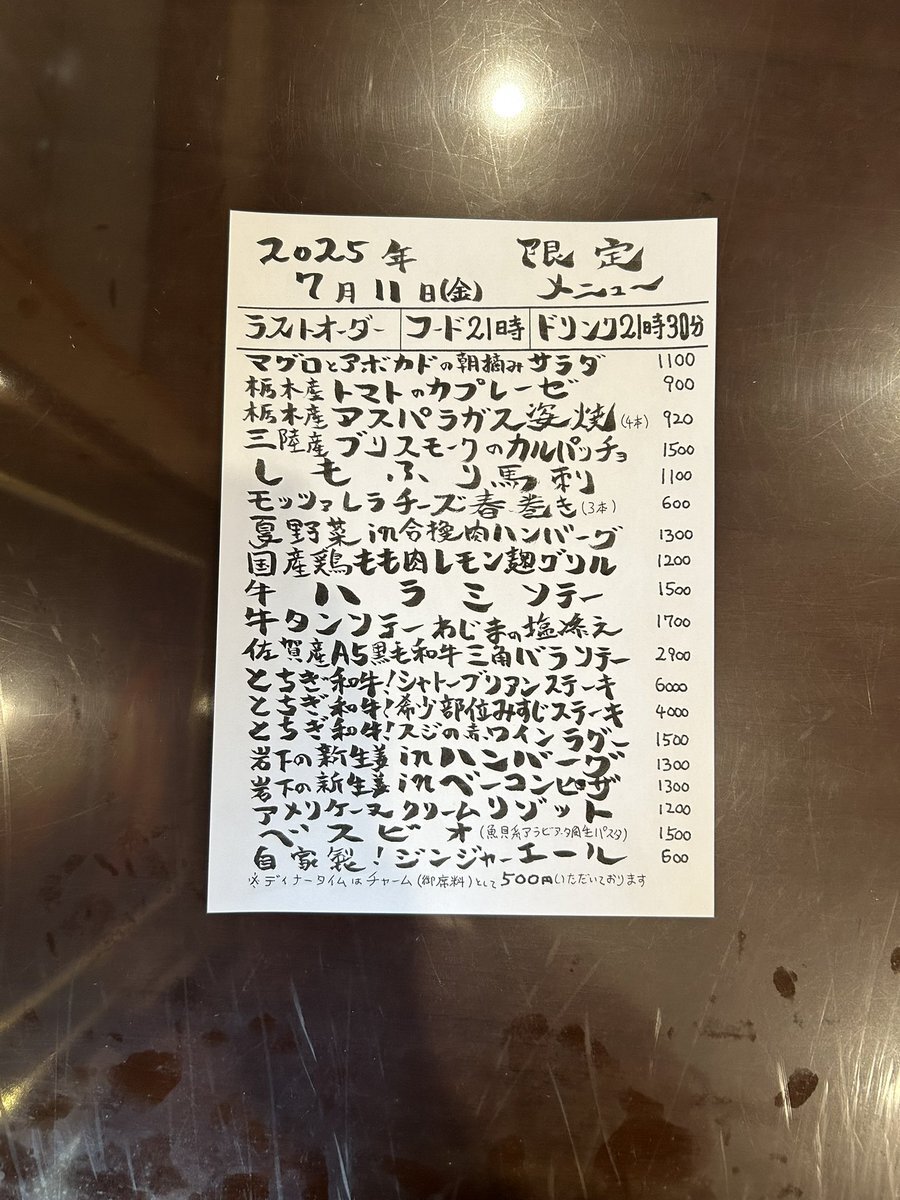 2025年 限定
7月11日(金) メニュー
ラストオーダー フード21時 ドリンク21時30分
マグロとアボカドの朝摘みサラダ 1100
栃木産トマトのカプレーゼ 900
栃木産アスパラガス姿焼(4本) 920
三陸産ブリスモークのカルパッチョ 1500
しもふり馬刺 1100
モッツァレラチーズ春巻き(3本) 600
夏野菜in合挽肉ハンバーグ 1300
国産鶏もも肉レモン麹グリル 1200
牛ハラミソテー 1500
牛タンソテーわじまの塩添え 1700
佐賀産A5黒毛和牛三角バラソテー 2900
とちぎ和牛!シャトーブリアンステーキ 6000
とちぎ和牛!希少部位みすじステーキ 4000
とちぎ和牛!スジの赤ワインラグー 1500
岩下の新生姜inハンバーグ 1300
岩下の新生姜inベーコンピザ 1300
アメリケーヌクリームリゾット 1200
ベスビオ(魚貝系アラビアータ風生パスタ) 1500
自家製!ジンジャーエール 600
※ディナータイムはチャーム(御席料)として500円いただいております